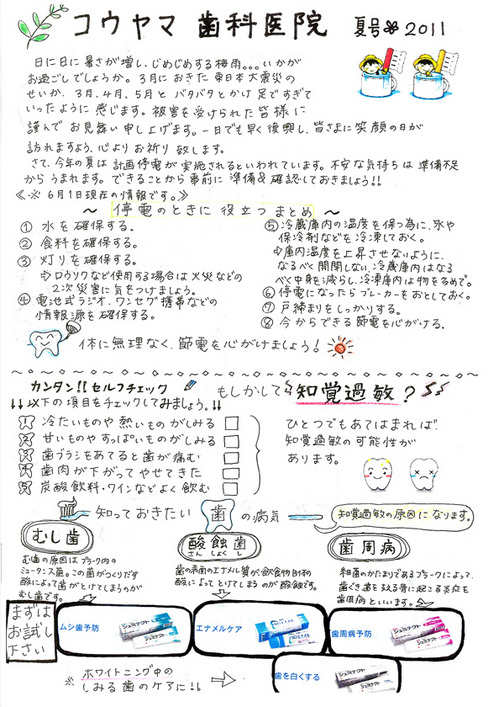 コウヤマ 歯科医院 夏号 2011
日に日に暑さが増し、じめじめする梅雨。。。いかが
お過ごしでしょうか。3月におきた東日本大震災の
せいか、3月、4月、5月とバタバタとかけ足ですぎて
いったように感じます。被害を受けられた皆様に
謹んでお見舞い申し上げます。一日でも早く復興し、皆さまに笑顔の日が
訪れますよう、心よりお祈り致します。
さて、今年の夏は計画停電が実施されるといわれています。不安な気持ちは準備不足
からうまれます。できることから事前に準備&確認しておきましょう!!
≪※6月1日現在の情報です。≫
～ 停電のときに役立つまとめ ～
① 水を確保する。
② 食料を確保する。
③ 灯りを確保する。
⇒ロウソクなど使用する場合は火災などの
2次災害に気をつけましょう。
④ 電池式ラジオ、ワンセグ携帯などの
情報源を確保する。
⑤ 冷蔵庫内の温度を保つ為に、氷や
保冷剤などを冷凍しておく。
⇒庫内温度を上昇させないように、
なるべく開閉しない。冷蔵庫内はなる
べく中身を減らし、冷凍庫内は物を多めで。
⑥ 停電になったらブレーカーをおとしておく。
⑦ 戸締まりをしっかりする。
⑧ 今からできる節電を心がける。
体に無理なく、節電を心がけましょう!
カンタン!!セルフチェック
↓↓以下の項目をチェックしてみましょう。↓↓
もしかして 知覚過敏?
冷たいものや熱いものがしみる
甘いものやすっぱいものがしみる
歯ブラシをあてると歯が痛む
歯肉が下がってやせてきた
炭酸飲料・ワインなどよく飲む
ひとつでもあてはまれば、
知覚過敏の可能性が
あります。
知っておきたい 歯 の病気
知覚過敏の原因になります。
むし歯
むし歯の原因はプラーク内の
ミュータンス菌。この菌がつくりだす
酸によって歯がとけてしまうのが
むし歯です。
酸蝕歯
さん しょく し
歯の表面のエナメル質が、飲食物自体の
酸によってとけてしまうのが酸蝕歯です。
歯周病
細菌のかたまりであるプラークによって、
歯ぐきや歯を支える骨に起こる炎症を
歯周病といいます。
まずは
お試し
下さい
ムシ歯予防
エナメルケア
歯周病予防
※ ホワイトニング中の
しみる歯のケアに!!
歯を白くする